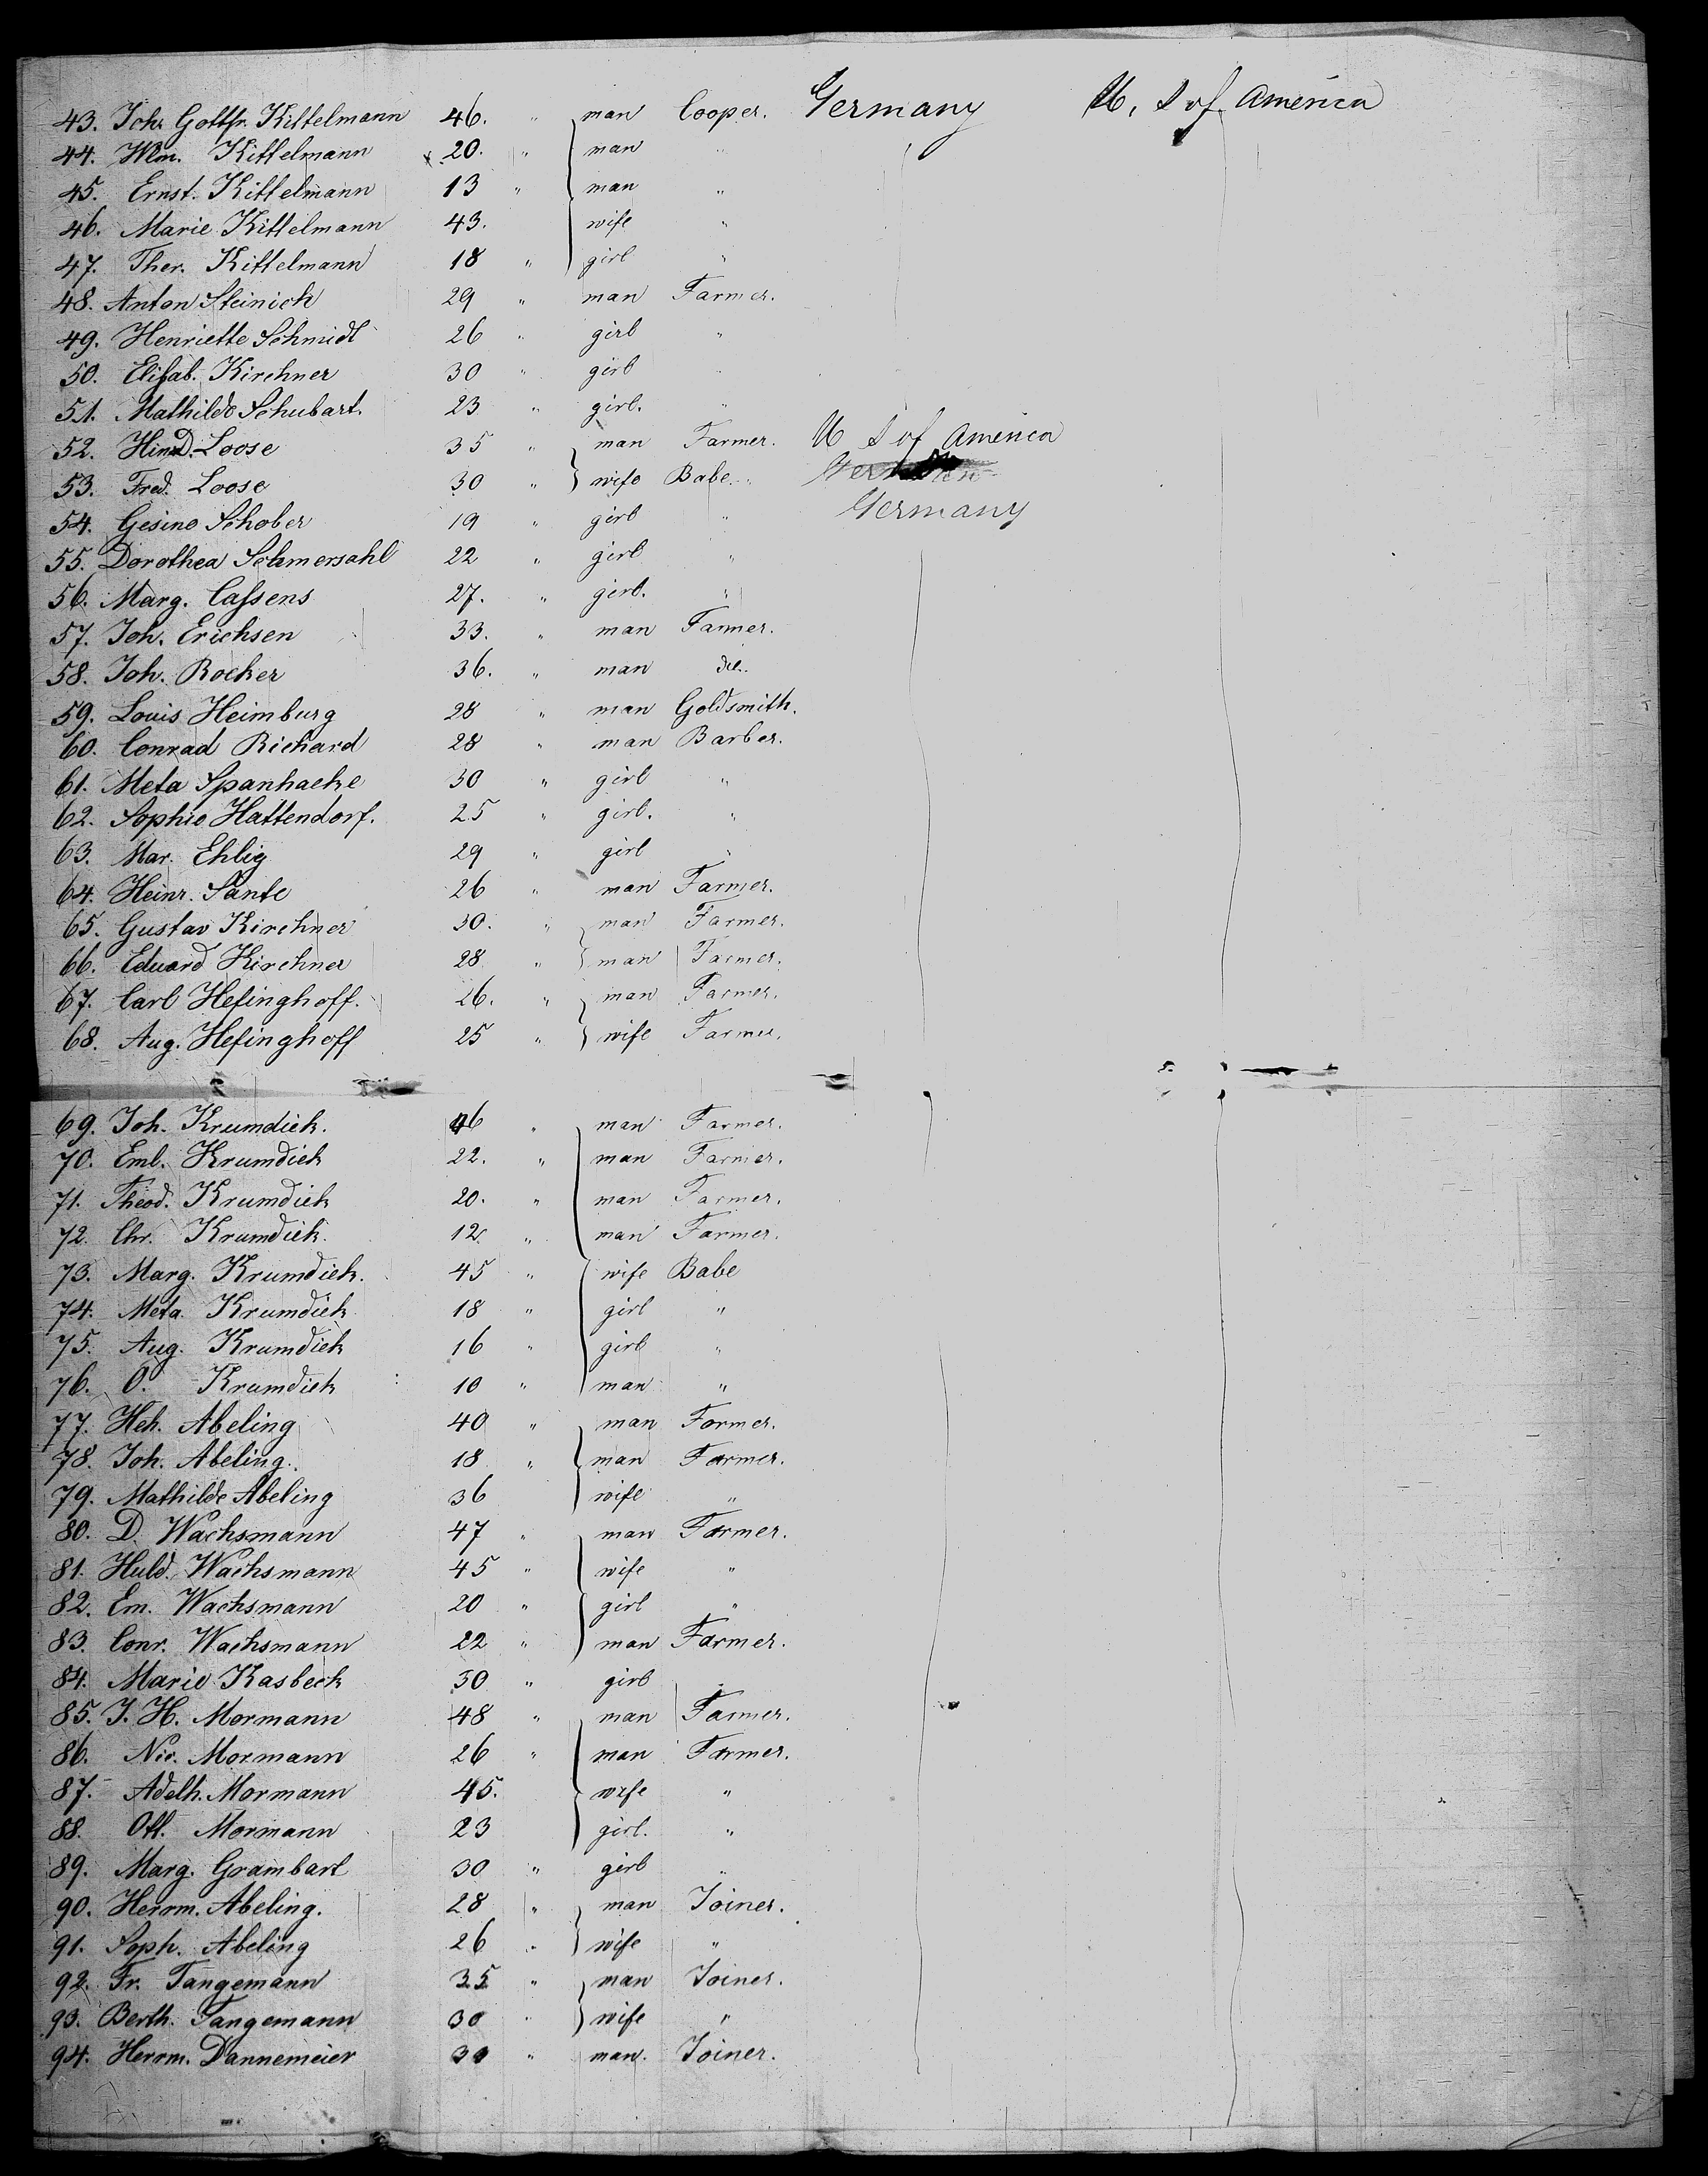 43. Joh. Gottfr. Kittelmann 46. " man Cooper. Germany U. S of America
44. Wm. Kittelmann 20. " man "
45. Ernst. Kittelmann 13 " man "
46. Marie Kittelmann 43. wife "
47. Ther. Kittelmann 18 " girl "
48. Anton Steinich 29 " man Farmer.
49. Henriette Schmidt 26 " girl "
50. Elisab. Kirchner 30 " girl "
51. Mathilde Schubart. 23 " girl. "
52. Hind. Loose 35 " man Farmer. U S of America
53. Fred. Loose 30 " wife Babe. "
54. Gesine Schober 19 " girl " Germany
55. Dorothea Schmersahl 22 " girl "
56. Marg. Cassens 27. " girl. "
57. Joh. Erichsen 33. " man Farmer.
58. Joh. Rocker 36. " man do.
59. Louis Heimburg 28 " man Goldsmith.
60. Conrad Richard 28 " man Barber.
61. Meta Spanhacke 30 " girl "
62. Sophie Hattendorf. 25 " girl. "
63. Mar. Ehlig 29 " girl "
64. Heinr. Sante 26 " man Farmer.
65. Gustav Kirchner 30. " man Farmer.
66. Eduard Kirchner 28 " man Farmer.
67. Carl Hefinghoff. 26. " man Farmer.
68. Aug. Hefinghoff 25 " wife Farmer.
69. Joh. Krumdick. 46 " man Farmer.
70. Eml. Krumdick 22. " man Farmer.
71. Theod. Krumdick 20. " man Farmer.
72. Chr. Krumdick. 12 " man Farmer.
73. Marg. Krumdick. 45 " wife Babe
74. Meta Krumdick 18 " girl "
75. Aug. Krumdick 16 " girl "
76. O. Krumdick 10 " man "
77. Heh. Abeling 40 " man Farmer.
78. Joh. Abeling. 18 " man Farmer.
79. Mathilde Abeling 36 wife "
80. D. Wachsmann 47 " man Farmer.
81. Huld. Wachsmann 45 " wife "
82. Em. Wachsmann 20 " girl "
83. Conr. Wachsmann 22 " man Farmer.
84. Marie Kasbeck 30 " girl "
85. J. H. Mormann 48 " man Farmer.
86. Nic. Mormann 26 " man Farmer.
87. Adelh. Mormann 45. wife "
88. Ott. Mormann 23 girl. "
89. Marg. Grambart 30 " girl "
90. Herrm. Abeling. 28 " man Joiner.
91. Soph. Abeling 26 " wife "
92. Fr. Tangemann 35 " man Joiner.
93. Berth. Tangemann 30 " wife "
94. Herrm. Dannemeier 30 " man. Joiner.